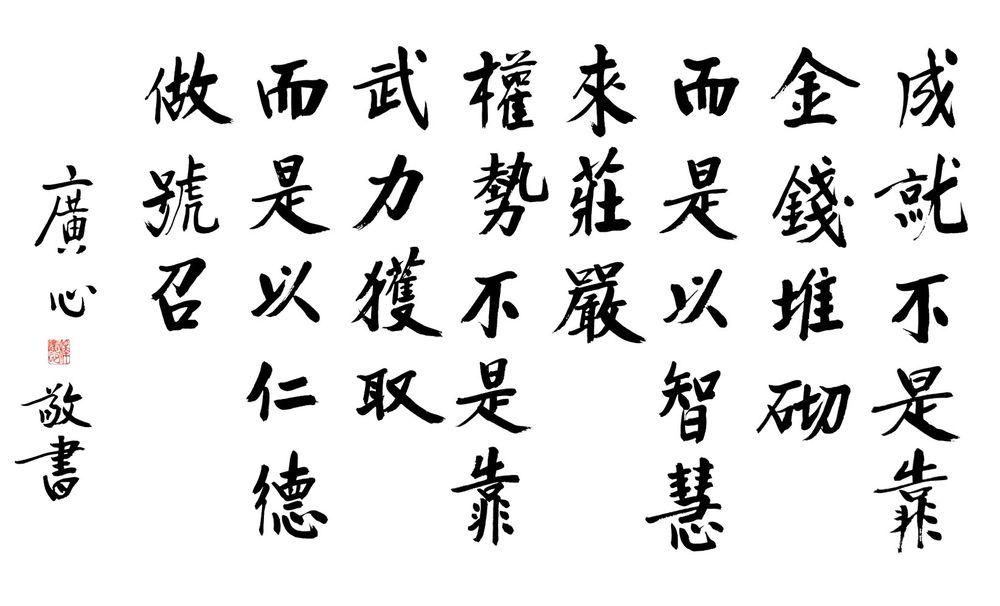 成就不是靠
金錢堆砌
而是以智慧
來莊嚴
權勢不是靠
武力獲取
而是以仁德
做號召
廣心
敬書